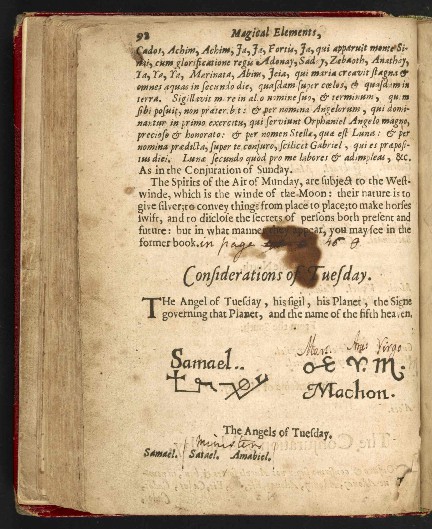 92 Magical Elements,
Cados, Achim, Achim, Ja, Ja, Fortis, Ja, qui apparuit monte Si-
nai, cum glorificatione regis Adonay, Saday, Zebaoth, Anathay,
Ya, Ya, Ya, Marinata, Abim, Jeia, qui maria creavit stagna &
omnes aquas in secundo die, quasdam super cœlos, & quasdam in
terra. Sigillavit mare in alto nomine suo, & terminum, quem
sibi posuit, non præterib.t: & per nomina Angelorum, qui domi-
nantur in primo exercitu, qui serviunt Orphaniel Angelo magno,
precioso & honorato: & per nomen Stellæ, quæ est Luna: & per
nomina prædicta, super te conjuro, scilicet Gabriel, qui es præposi-
tus diei. Lunæ secundo quòd pro me labores & adimpleas, &c.
As in the Conjuration of Sunday.
The Spirits of the Air of Munday, are subject to the West-
winde, which is the winde of the Moon: their nature is to
give silver; to convey things from place to place; to make horses
swift, and to disclose the secrets of persons both present and
future: but in what manner they appear, you may see in the
former book. in page
Considerations of Tuesday.
THe Angel of Tuesday, his sigil, his Planet, the Signe
governing that Planet, and the name of the fifth heaven.
Mars. Virgo
Samael.. ♂ ♈ ♏.
Machon.
The Angels of Tuesday.
ministers
Samael. Satael. Amabiel.